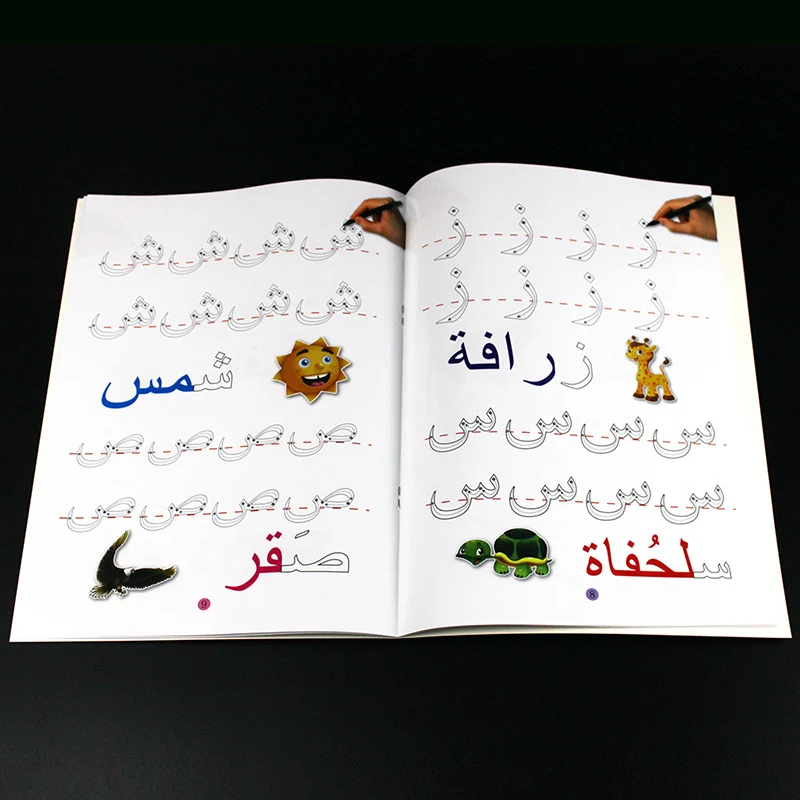 ز ز ز ز
ز ز ز ز
زرافة
س س س س
س س س س
سلحُفاة
8
ش ش ش ش
ش ش ش ش
شمس
ص ص ص ص
ص ص ص ص
صَقر
9